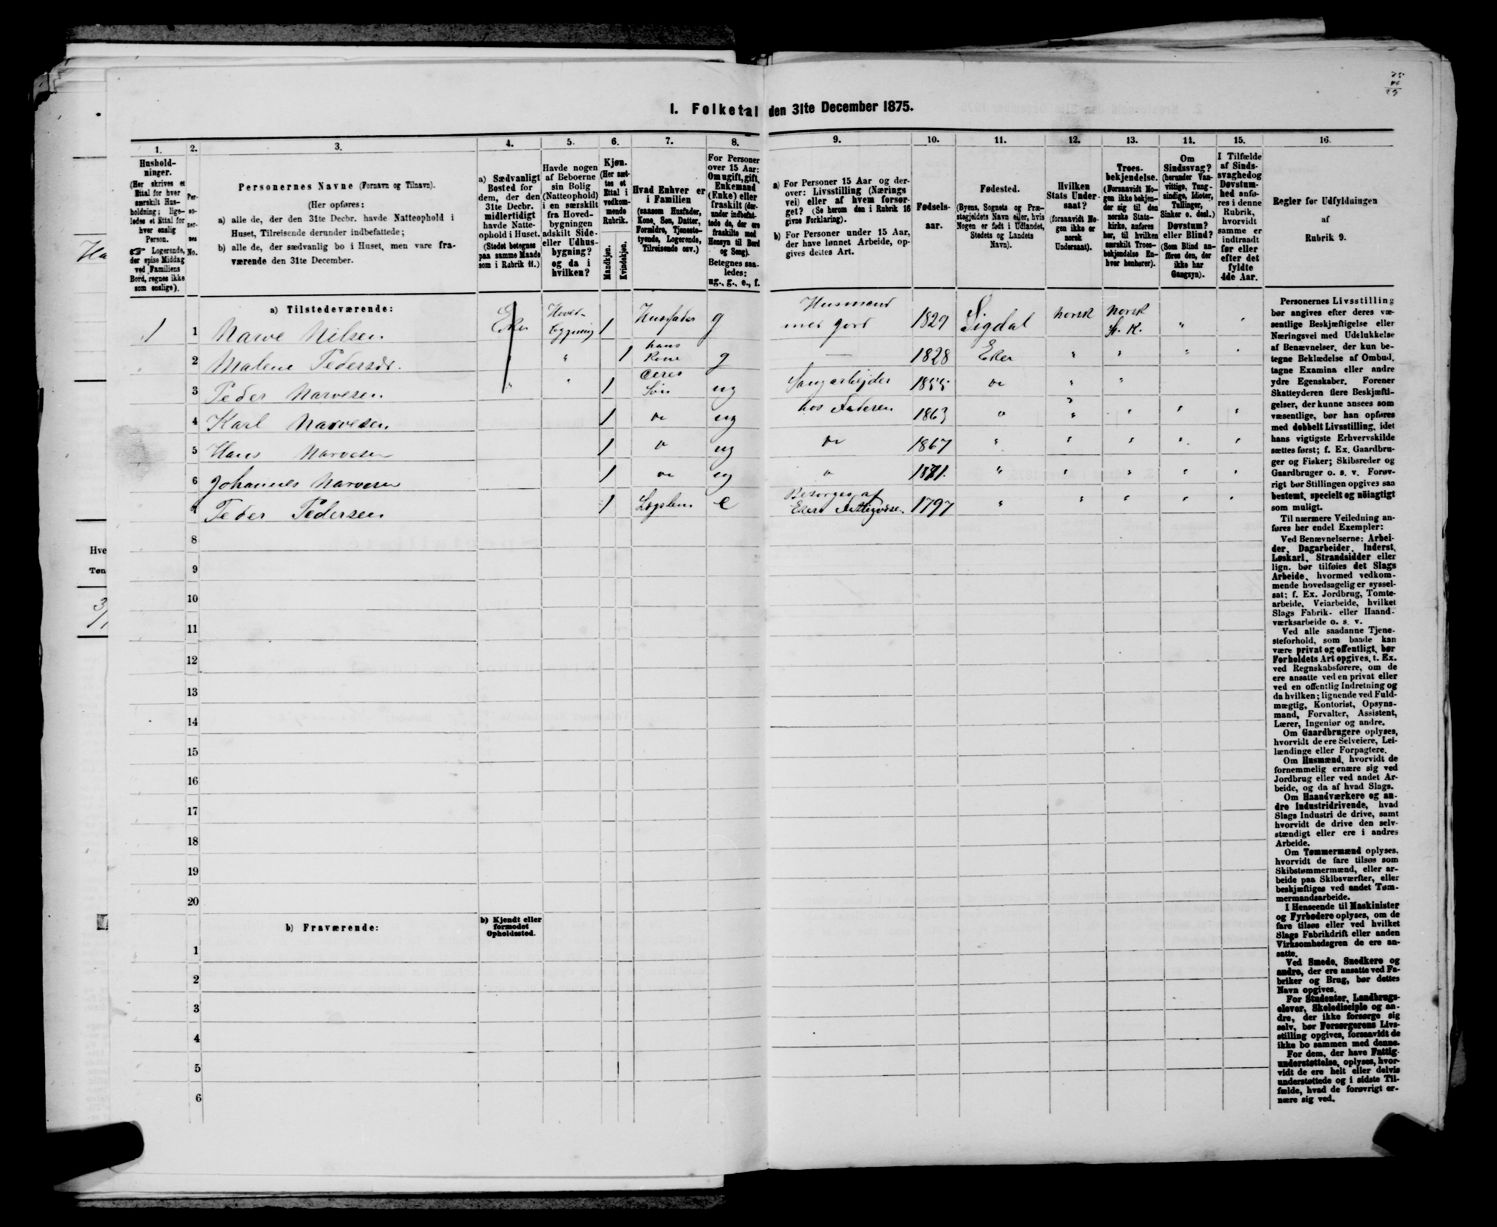 I. Folketal den 31te December 1875.
1. 2. 3. 4. 5. 6. 7. 8. 9. 10. 11. 12. 13. 14. 15. 16.
Hushold-
ninger.
(Her skrives et
Ettal for hver
særskilt Hus-
holdning; lige-
ledes et Ettal for
hver enslig
Person.
☞ Logerende,
der spise Middag
ved Familiens
Bord, regnes ikke
som enslige).
Per-
so-
ner-
nes
No.
Personernes Navne (Fornavn og Tilnavn).
(Her opføres:
a) alle de, der den 31te Decbr. havde Natteophold i
Huset, Tilreisende derunder indbefattede;
b) alle de, der sædvanlig bo i Huset, men vare fra-
værende den 31te December.
a) Sædvanligt
Bosted for
dem, der den
31te Decbr.
midlertidigt
havde Natte-
ophold i Huset.
(Stedet betegnes
paa samme Maade
som i Rubrik 11.)
Havde nogen
af Beboerne
sin Bolig
(Natteophold)
i en særskilt
fra Hoved-
bygningen
adskilt Side-
eller Udhus-
bygning?
og da i
hvilken?
Kjøn.
(Her sæt-
tes et
Ettal i
vedkom-
mende
Rubrik.
Mandkjøn.
Kvindekjøn.
Hvad Enhver er
i Familien
(saasom Husfader,
Kone, Søn, Datter,
Forældre, Tjeneste-
tyende, Logerende,
Tilreisende osv.)
For Personer
over 15 Aar:
Om ugift, gift,
Enkemand
(Enke) eller
fraskilt (der-
under indbefat-
tede de, der ere
fraskilt med
Hensyn til Bord
og Seng).
Betegnes saa-
ledes:
ug., g., e., f.
a) For Personer 15 Aar og der-
over: Livsstilling (Nærings
vei) eller af hvem forsør-
get? (Se herom den i Rubrik 16
givne Forklaring).
b) For Personer under 15 Aar,
der have lønnet Arbeide, op-
gives dettes Art.
Fødsels-
aar.
Fødested.
(Byens, Sognets og Præ-
stegjeldets Navn eller, hvis
Nogen er født i Udlandet,
Stedets og Landets
Navn).
Hvilken
Stats Under-
saat?
(forsaavidt No-
gen ikke er
norsk
Undersaat).
Troes-
bekjendelse.
(Forsaavidt No-
gen ikke bekjen-
der sig til den
norske Stats-
kirke, anføres
her, til hvilken
særskilt Troes-
bekjendelse En-
hver henhører).
Om
Sindssvag?
(herunder Van-
vittige, Tung-
sindige, Idioter,
Sinker o. desl.)
Døvstum?
eller Blind?
(Som Blind an-
føres den, der
ikke har
Gangsyn).
I Tilfælde
af Sinds-
svaghed og
Døvstum-
hed anfø-
res i denne
Rubrik,
hvorvidt
samme er
indtraadt
før eller
efter det
fyldte
4de Aar.
Regler før Udfyldningen
af
Rubrik 9.
a) Tilstedeværende:
1 1 Narve Nilsen Eker Hoved- bygning 1 Husfader g Husmand med Jord 1829 Sigdal norsk norsk St. K. " "
2 Malene Pedersdr. " " 1 hans Kone g 1828 Eker " " " "
3 Peder Narvesen " " 1 deres Søn ug Saugarbejder 1855 do " "
4 Karl Narvesen 1 do ug hos Faderen 1863 " " " " "
5 Hans Narvesen 1 do ug do 1867 " " " " "
6 Johannes Narvesen 1 do ug " 1871. " " " " "
7 Peder Pedersen 1 Logerende e Besørges af Ekers Fattigvæsen. 1797 " " " " "
8
9
10
11
12
13
14
15
16
17
18
19
20
b) Fraværende:
b) Kjendt eller
formodet
Opholdssted.
1
2
3
4
5
6
Personernes Livsstilling
bør angives efter deres væ-
sentlige Beskjæftigelse eller
Næringsvei med Udelukkelse
af Benævnelser, der kun be-
tegne Bekladelse af Ombud,
tagne Examina eller andre
ydre Egenskaber. Forener
Skatteyderen flere Beskjæfti-
gelser, der kunne ansees som
væsentlige, bør han opføres
med dobbelt Livsstilling, idet
hans vigtigste Erhvervskilde
sættes først; f. Ex. Gaardbru-
ger og Fisker; Skibsreder og
Gaardbruger o. s. v. Forøv-
rigt bør Stillingen opgives saa
bestemt, specielt og nøiagtigt
som muligt.
Til nærmere Veiledning an-
føres her endel Exempler:
Ved Benævnelserne: Arbei-
der, Dagarbeider, Inderst,
Løskarl, Strandsidder eller
lign. bør tilføies det Slags
Arbeide, hvormed vedkom-
mende hovedsagelig er syssel-
sat; f. Ex. Jordbrug, Tomte-
arbeide, Veiarbeide, hvilket
Slags Fabrik- eller Haand-
værksarbeide o. s. v.
Ved alle saadanne Tjene-
steforhold, som baade kan
være privat og offentligt, bør
Forholdets Art opgives, t. Ex.
ved Regnskabsførere, om de
ere ansatte ved en privat eller
ved en offentlig Indretning og
da hvilken; lignende ved Fuld-
mægtig, Kontorist, Opsyns-
mand, Forvalter, Assistent,
Lærer, Ingeniør og andre.
Om Gaardbrugere oplyses,
hvorvidt de ere Selveiere, Lei-
lændinge eller Forpagtere.
Om Husmænd, hvorvidt de
fornemmelig ernære sig ved
Jordbrug eller ved andet Ar-
beide, og da af hvad Slags.
Om Haandværkere og an-
dre Industridrivende, hvad
Slags Industri de drive, samt
hvorvidt de drive den selv-
stændigt eller ere i andres
Arbeide.
Om Tømmermænd oplyses,
hvorvidt de fare tilsøs som
Skibstømmermænd, eller ar-
beide paa Skibsværfter, eller
beskjæftiges ved andet Tøm-
mermandsarbeide.
I Henseende til Maskinister
og Fyrbødere oplyses, om de
fare tilsøs eller ved hvilket
Slags Fabrikdrift eller anden
Virksomhedsgren de ere an-
satte.
Ved Smede, Snedkere og
andre, der ere ansatte ved Fa-
briker og Brug, bør dettes
Navn opgives.
For Studenter, Landbrugs-
elever, Skoledisciple og an-
dre, der ikke forsørge sig
selv, bør Forsørgerens Livs-
stilling opgives, forsaavidt de
ikke bo sammen med denne.
For dem, der have Fattig-
understøttelse, oplyses, hvor-
vidt de ere helt eller delvis
understøttede og i sidste Til-
fælde, hvad de forøvrigt er-
nære sig ved.